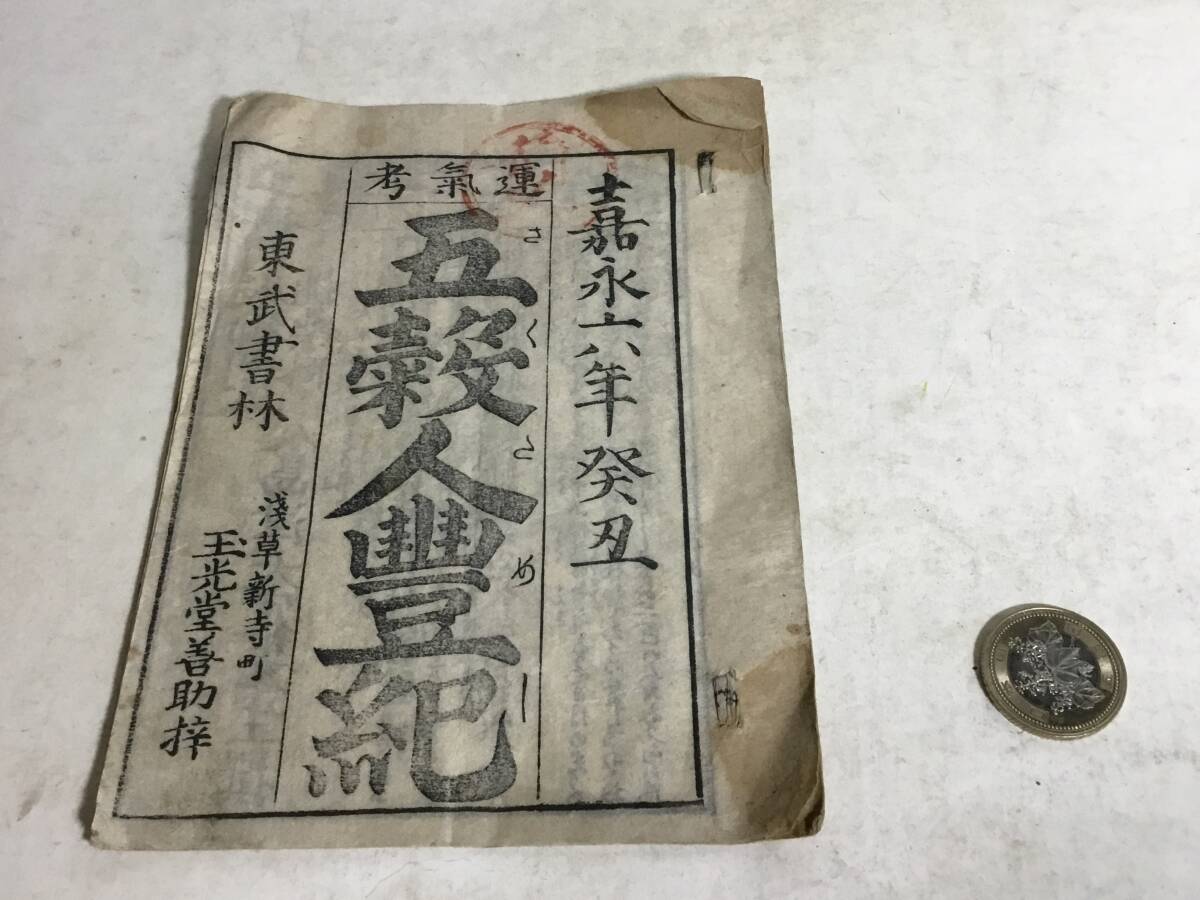 嘉永六年癸丑
運氣考
五穀人豐紀
さくさためし
東武書林
淺草新寺町
玉光堂善助梓